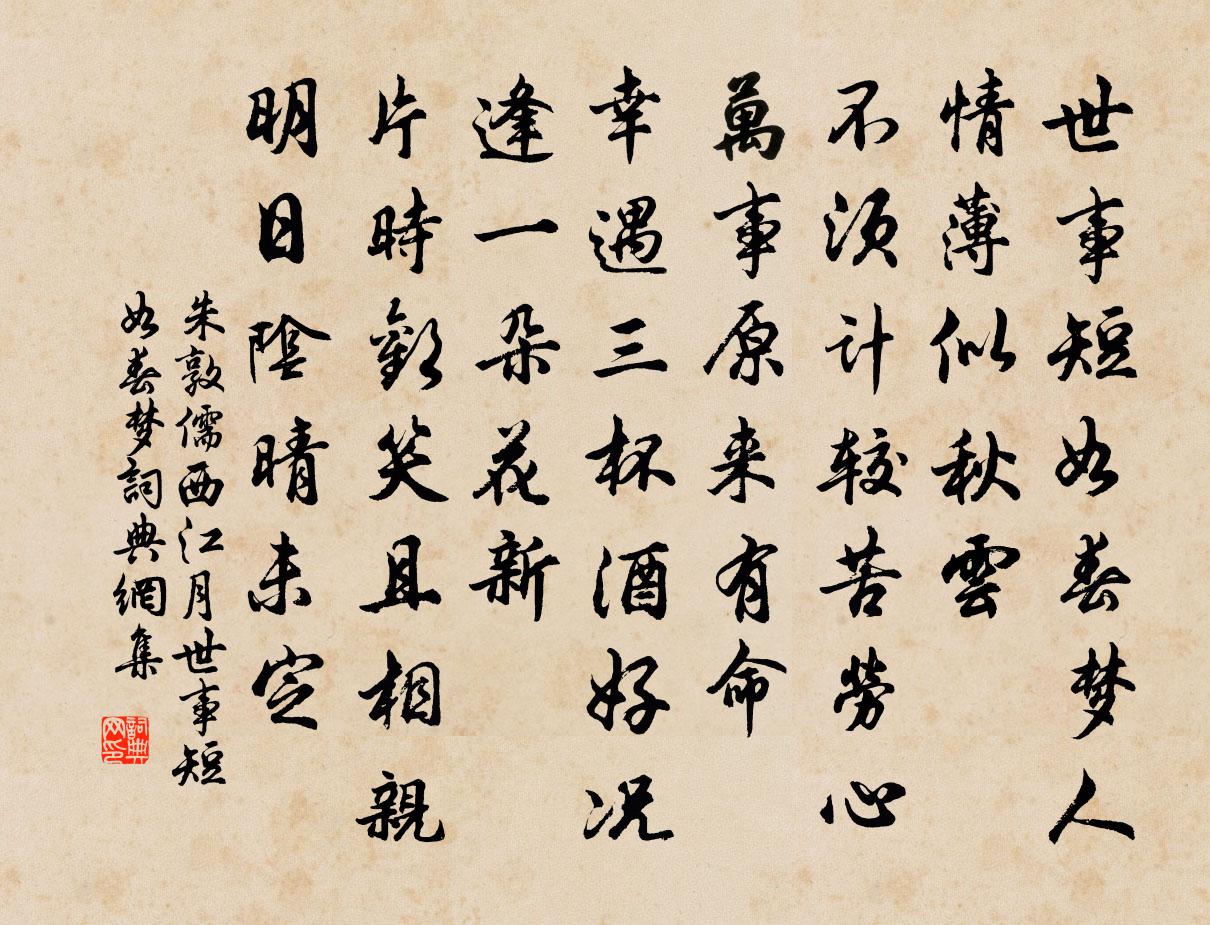 世事短如春梦人
情薄似秋雲
不须计较苦勞心
萬事原来有命
幸遇三杯酒好况
逢一朵花新
片時歡笑且相親
明日陰晴未定
朱敦儒西江月世事短
如春梦詞典網集
詞典网印